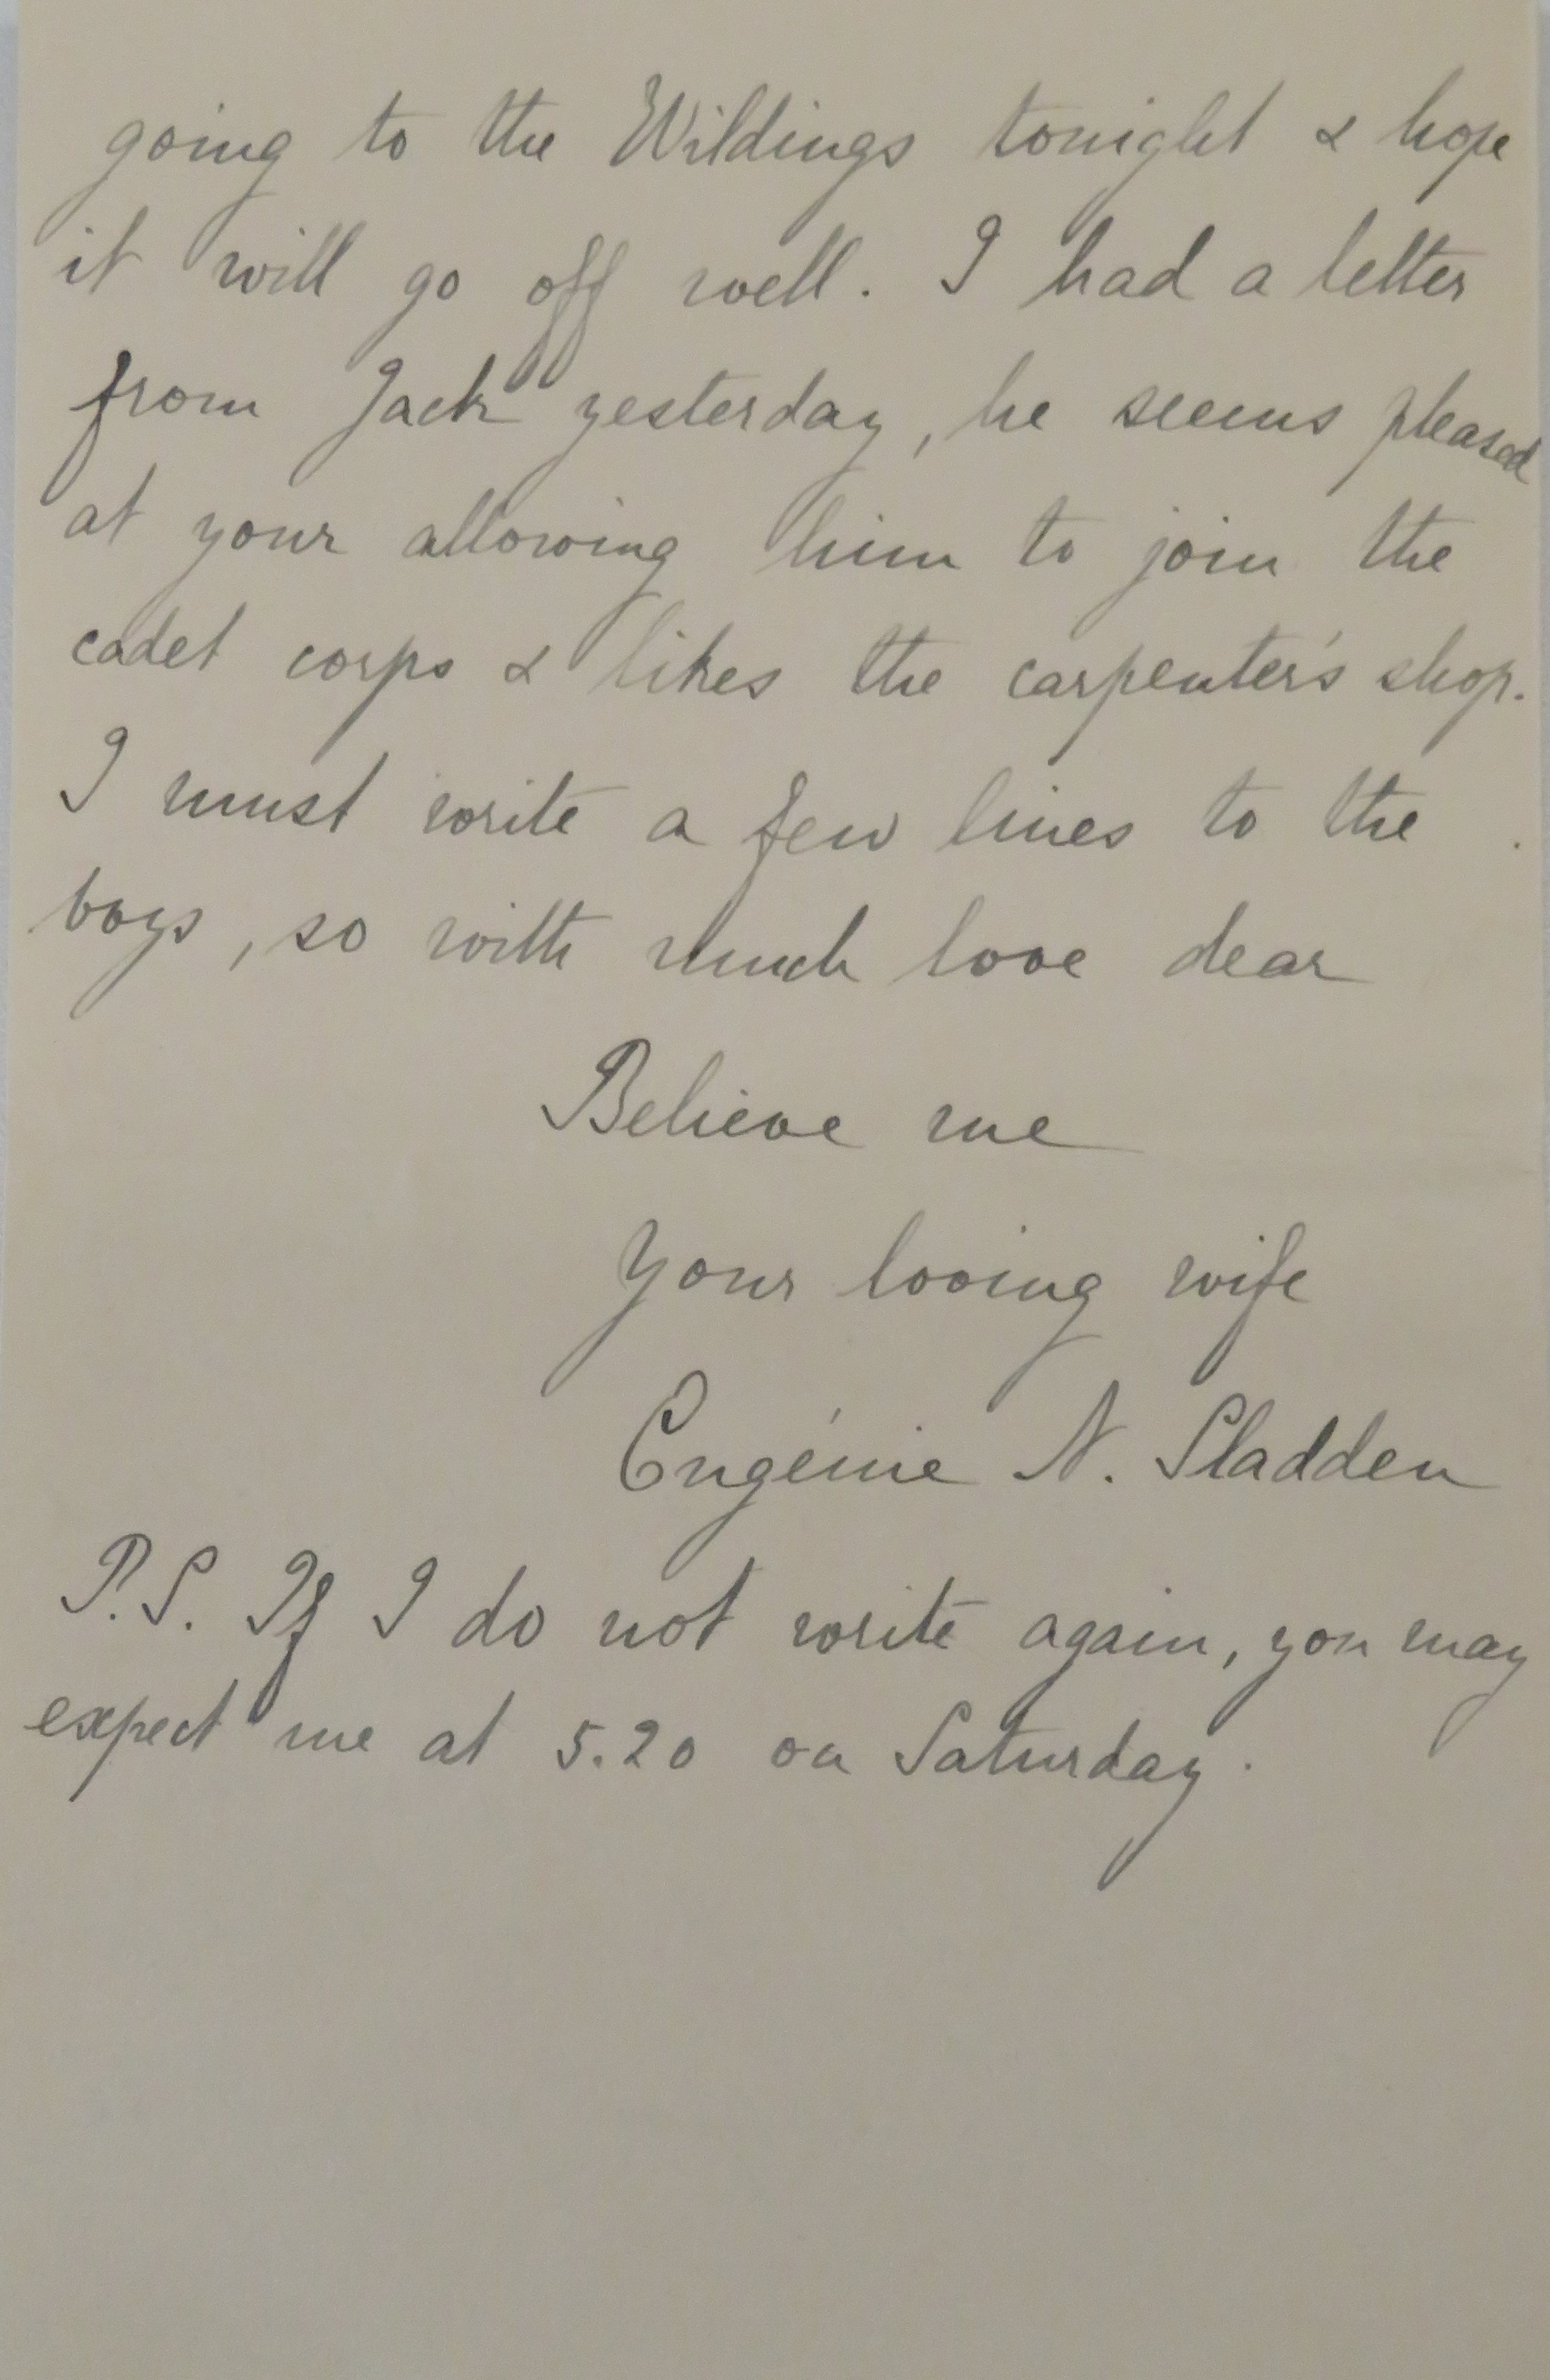 going to the Wildings tonight & hope
it will go off well. I had a letter
from Jack yesterday, he seems pleased
at your allowing him to join the
cadet corps & likes the carpenter's shop.
I must write a few lines to the
boys, so with much love dear
Believe me
Your loving wife
Eugénie N. Sladden
P.S. If I do not write again, you may
expect me at 5.20 on Saturday.